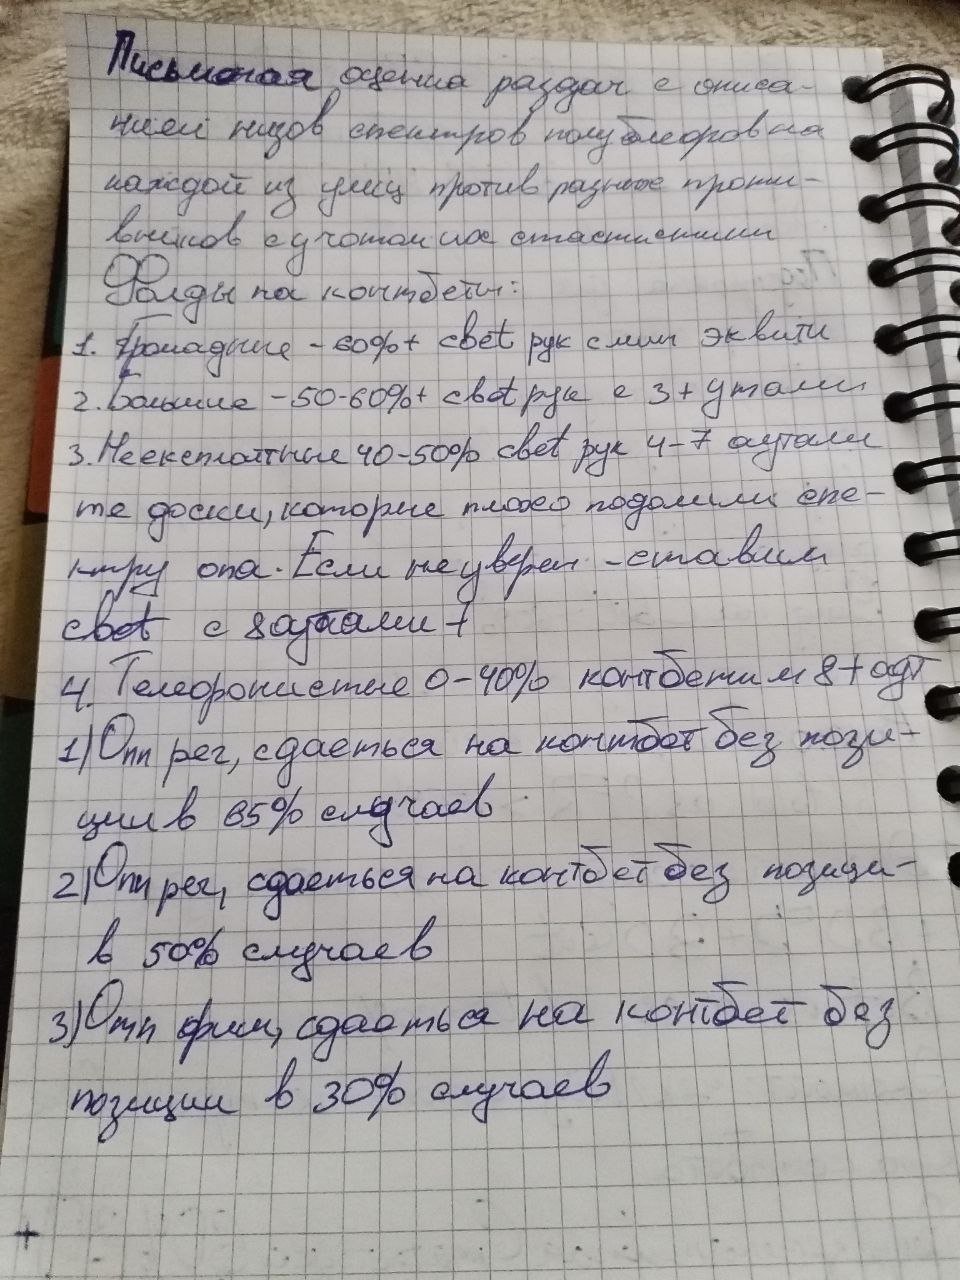 Письменная оценка раздач с описа-
нием низов спектров полублефов на
каждой из улиц против разных проти-
вников с учотом их статистики
Фолды на контбеты:
1. Громадные - 60%+ cbet рук с мин эквити
2. Большие - 50-60%+ cbet рук с 3+ утами
3. Неексплатные 40-50% cbet рук 4-7 аутами
те доски, которые плохо подошли спе-
ктру опа. Если не уверен - ставим
cbet с 8 аутами +
4. Телефонистые 0-40% контбетим 8+ аут
1) Опп рег, сдаеться на контбет без пози-
ции в 65% случаев
2) Опп рег, сдаеться на контбет без позици-
в 50% случаев
3) Опп фиш, сдаеться на контбет без
позиции в 30% случаев
+